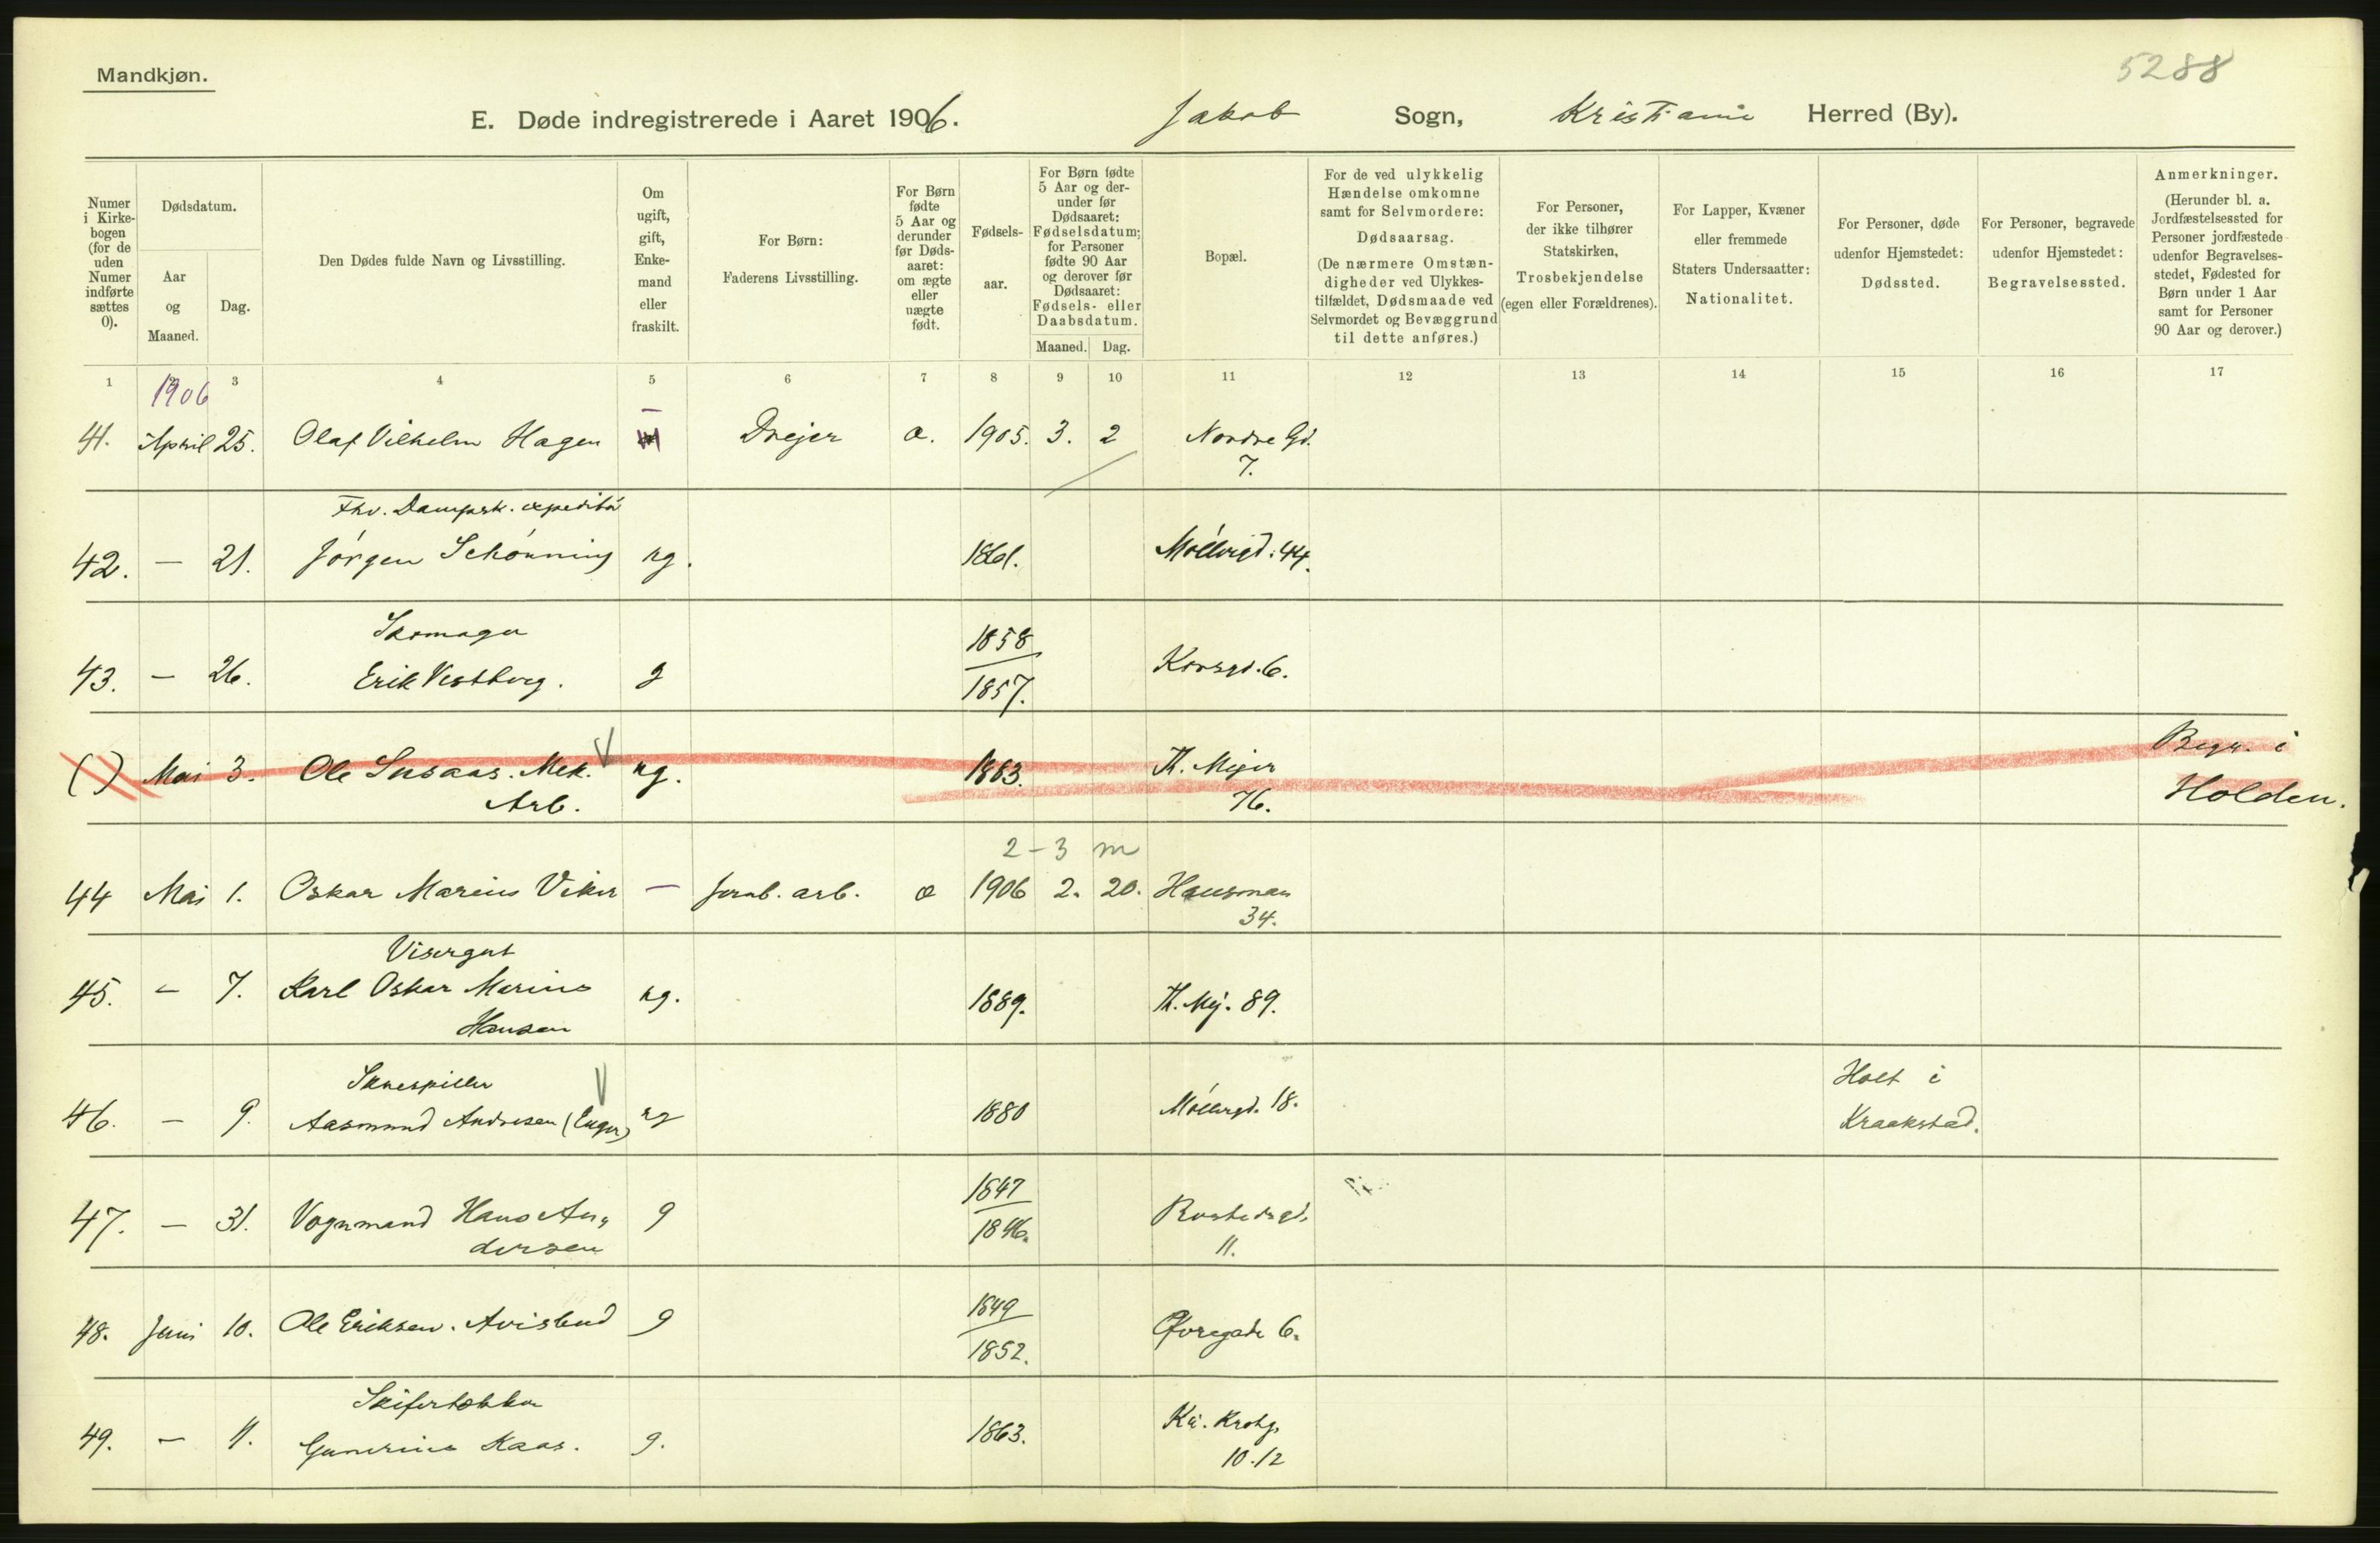 Mandkjøn.
5288
E. Døde indregistrerede i Aaret 1906. Jakob Sogn, Kristiania Herred (By).
Numer i Kirkebogen (for de uden Numer indførte sættes 0).
Dødsdatum.
Aar og Maaned.
Dag.
Den Dødes fulde Navn og Livsstilling.
Om ugift, gift, Enkemand eller fraskilt.
For Børn: Faderens Livsstilling.
For Børn fødte 5 Aar og derunder før Dødsaaret: om ægte eller uægte født.
Fødselsaar.
For Børn fødte 5 Aar og derunder før Dødsaaret: Fødselsdatum; for Personer fødte 90 Aar og derover før Dødsaaret: Fødsels- eller Daabsdatum.
Maaned. Dag.
Bopæl.
For de ved ulykkelig Hændelse omkomne samt for Selvmordere: Dødsaarsag. (De nærmere Omstændigheder ved Ulykkestilfældet, Dødsmaade ved Selvmordet og Bevæggrund til dette anføres.)
For Personer, der ikke tilhører Statskirken, Trosbekjendelse (egen eller Forældrenes).
For Lapper, Kvæner eller fremmede Staters Undersaatter: Nationalitet.
For Personer, døde udenfor Hjemstedet: Dødssted.
For Personer, begravede udenfor Hjemstedet: Begravelsessted.
Anmerkninger. (Herunder bl. a. Jordfæstelsessted for Personer jordfæstede udenfor Begravelsesstedet, Fødested for Børn under 1 Aar samt for Personer 90 Aar og derover.)
1 2 3 4 5 6 7 8 9 10 11 12 13 14 15 16 17
1906
41. April 25. Olaf Vilhelm Hagen — Drejer a. 1905. 3. 2 Nordre Gd.
7.
Fhv. Dampsk. expeditør
42. — 21. Jørgen Schønning ug. 1861. Møllergd. 44.
Skomager 1858
43. — 26. Erik Vestberg. g 1857. Korsgd. 6.
( ) Mai 3. Ole Susaas. Mek. ug. 1883. Th. Mejer Begr. i
Arb. 76. Holden.
2-3 m
44 Mai 1. Oskar Marius Viker — Jernb. arb. a 1906 2. 20. Hausman
34.
Visergut
45. — 7. Karl Oskar Marius ug. 1889. Th. Mej. 89.
Hansen
Skuespiller Holt i
46. — 9. Aasmund Andresen (Enger) ug 1880 Møllergd. 18. Kraakstad.
1847
47. — 31. Vognmand Hans An- g 1846. Rostedsgd.
dersen 11.
1849
48. Juni 10. Ole Eriksen. Avisbud g 1852. Øvregade 6.
Skifertækker
49. — 11. Gunerius Kaas. g. 1863. Kr. Krohg.
10.12